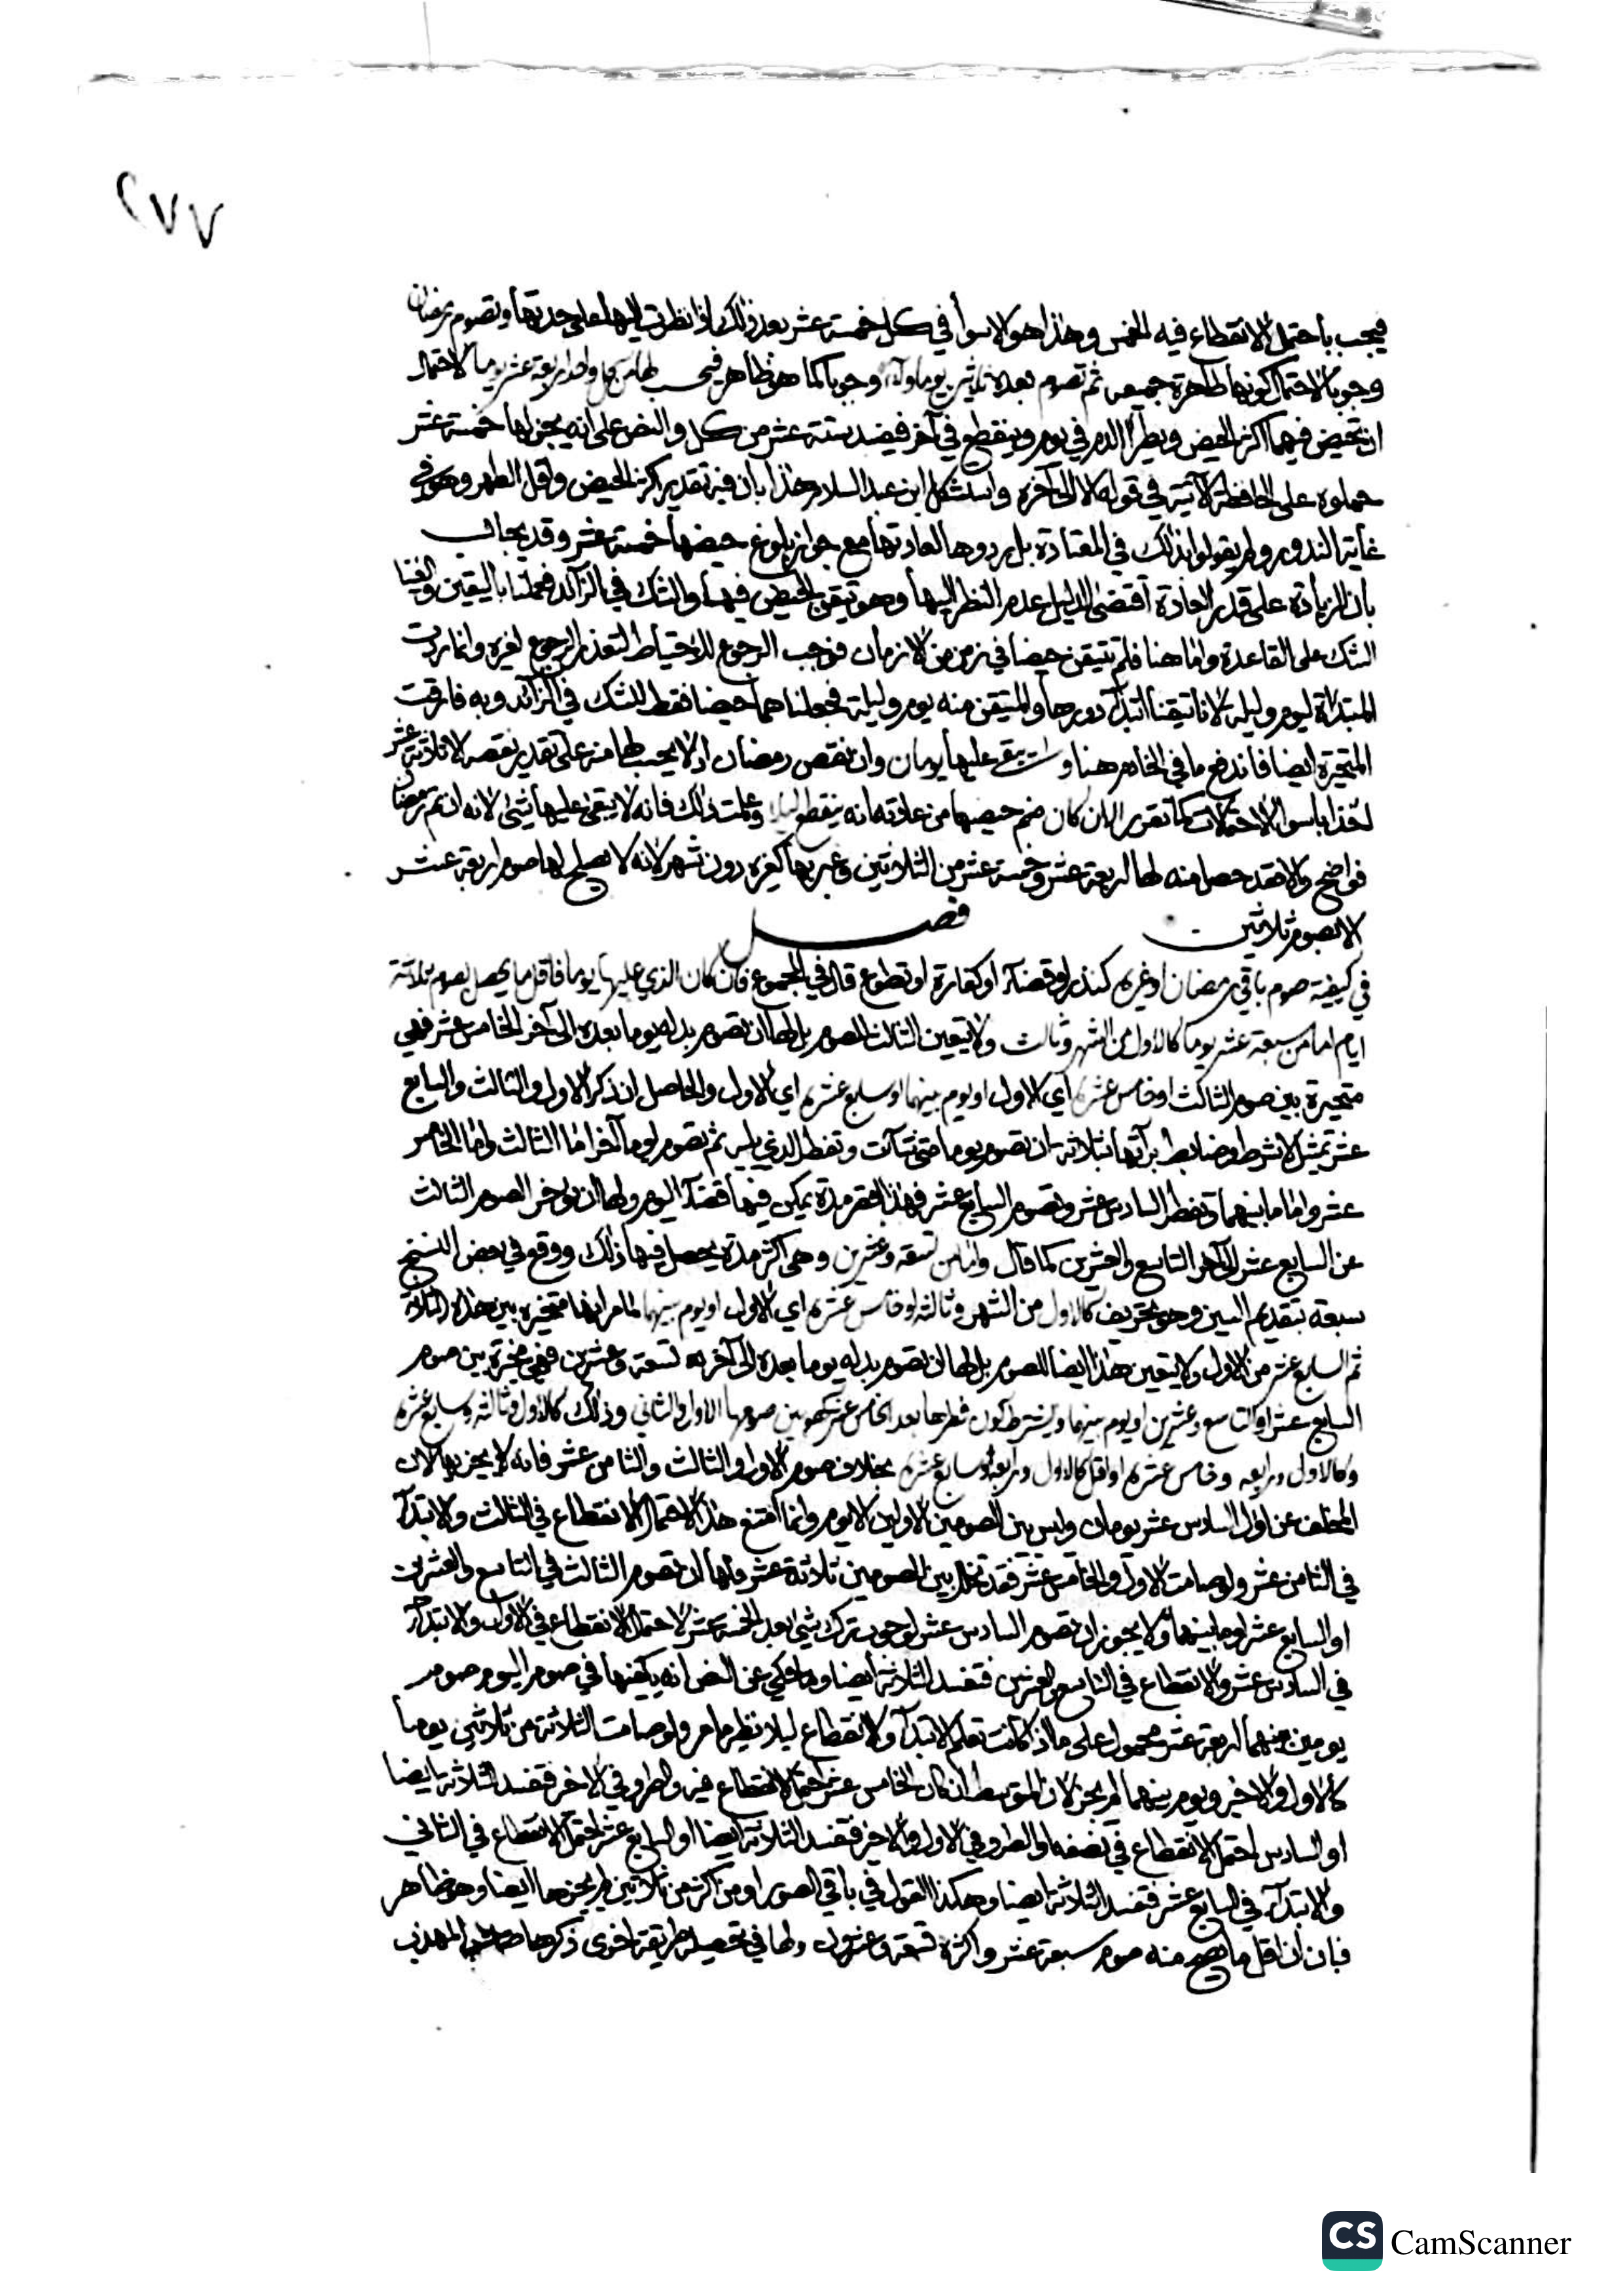 ٢٧٧
فيجب باحتمال الانقطاع فيه الخمس وهذا هو الاسوأ في كل خمسة عشر بعد ذلك اذا نظرت اليها على حدتها وتصوم رمضان
وجوبا لاحتمال كونها طاهرة جميعه ثم تصوم بعده ثلاثين يوما ولاء وجوبا كما هو ظاهر فيحسب لها من كل واحد اربعة عشر يوما لاحتمال
ان تحيض فيهما اكثر الحيض ويطرأ الدم في يوم وينقطع في آخر فيفسد ستة عشر من كل والنص على انه يجزيها خمسة عشر
حملوه على الحافظة الآتية في قوله لا الى آخره واستشكل ابن عبد السلام هذا بان فيه تقدير اكثر الحيض واقل الطهر وهو في
غاية الندور ولم يقولوا بذلك في المعتادة بل يردوها لعادتها مع جواز بلوغ حيضها خمسة عشر وقد يجاب
بان الزيادة على قدر العادة اقتضى الدليل عدم النظر اليها وهو تيقن الحيض فيها والشك في الزائد فعملنا باليقين والغينا
الشك على القاعدة واما هنا فلم نتيقن حيضا في زمن من الازمان فوجب الرجوع للاحتياط لتعذر الرجوع لغيره وانما ردت
المبتدأة ليوم وليلة لانا تيقنا ابتداء دورها والمتيقن منه يوم وليلة فجعلناهما حيضا فقط للشك في الزائد وبه فارقت
المتحيرة ايضا فاندفع ما في الخادم هنا و يبقى عليها يومان وان نقص رمضان اذ لا يحسب لها منه على تقدير نقصه الا ثلاثة عشر
اخذا باسوأ الاحتمالات كما تقرر الا ان كان منهم حيضها من عادته انه ينقطع ليلا وعلمت ذلك فانه لا يبقى عليها شيء لانه ان تم رمضان
فواضح والا فقد حصل منه لها اربعة عشر وخمسة عشر من الثلاثين وعبر بها كغيره دون شهر لانه لا يصلح لها صوم اربعة عشر
الا بصوم ثلاثين فصل
في كيفية صوم باقي رمضان او غيره كنذر او قضاء او كفارة او تطوع قال في المجموع فان كان الذي عليها يوما فاقل ما يحصل بصوم ثلاثة
ايام اما من سبعة عشر يوما كالاول من الشهر وثالث ولا يتعين الثالث للصوم بل لها ان تصوم بدله يوما بعده الى آخر الخامس عشر فهي
متحيرة بين صوم الثالث او خامس عشره اي الاول او يوم بينهما وسابع عشره اي الاول والحاصل ان ذكر الاول والثالث والسابع
عشر تمثيل لا شرط وضابط براءتها بثلاثة ان تصوم يوما متى شاءت وتفطر الذي يليه ثم تصوم يوما آخر اما الثالث واما الخامس
عشر واما ما بينهما وتفطر السادس عشر وتصوم السابع عشر فهذا اقصر مدة يمكن فيها قضاء اليوم ولها ان تؤخر الصوم الثالث
عن السابع عشر الى آخر التاسع والعشرين كما قال واما من تسعة وعشرين وهي اكثر مدة يحصل فيها ذلك ووقع في بعض النسخ
سبعة بتقديم السين وهو تحريف كالاول من الشهر وثالثه او خامس عشره اي الاول او يوم بينهما لما مر انها متخيرة بين هذه الثلاثة
ثم السابع عشر من الاول ولا يتعين هذا ايضا للصوم بل لها ان تصوم بدله يوما بعده الى آخر تسعة وعشرين فهي مخيرة بين صوم
السابع عشر او التاسع وعشرين او يوم بينهما ويشترط كون فطرها بعد الخامس عشر كهو بين صومها الاول والثاني وذلك كالاول وثالثه وسابع عشره
وكالاول ورابعه وخامس عشره او اقل كالاول ورابعه وسابع عشره بخلاف صوم الاول والثالث والثامن عشر فانه لا يجزيها لان
المخلف عن اول السادس عشر يومان وليس بين الصومين الاولين الا يوم وانما امتنع هذا لاحتمال الانقطاع في الثالث والابتداء
في الثامن عشر ولو صامت الاول والخامس عشر فقد تخلل بين الصومين ثلاثة عشر فلها ان تصوم الثالث في التاسع والعشرين
او السابع عشر او ما بينهما ولا يجوز ان تصوم السادس عشر لوجوب ترك شيء بعد الخمسة عشر لاحتمال الانقطاع في الاول والابتداء
في السادس عشر والانقطاع في التاسع والعشرين فتفسد الثلاثة ايضا وما حكي عن النص انه يكفيها في صوم اليوم صوم
يومين بينهما اربعة عشر محمول على ما اذا كانت تعلم الابتداء والانقطاع ليلا نظير ما مر ولو صامت الثلاثة من ثلاثين يوما
كالاول والاخير ويوم بينهما لم يجز لان المتوسط ان كان الخامس عشر احتمل الانقطاع فيه والطرو في الاخر فتفسد الثلاثة ايضا
او السادس احتمل الانقطاع في نصفه والطرو في الاول والاخر فتفسد الثلاثة ايضا او السابع عشر احتمل الانقطاع في الثاني
والابتداء في السابع عشر فتفسد الثلاثة ايضا وهكذا القول في باقي الصور او من اكثر من ثلاثين لم يجزها ايضا وهو ظاهر
فبان ان اقل ما يصح منه صوم سبعة عشر واكثره تسعة وعشرون ولها في تحصيله طريقة اخرى ذكرها صاحب المهذب
CS CamScanner